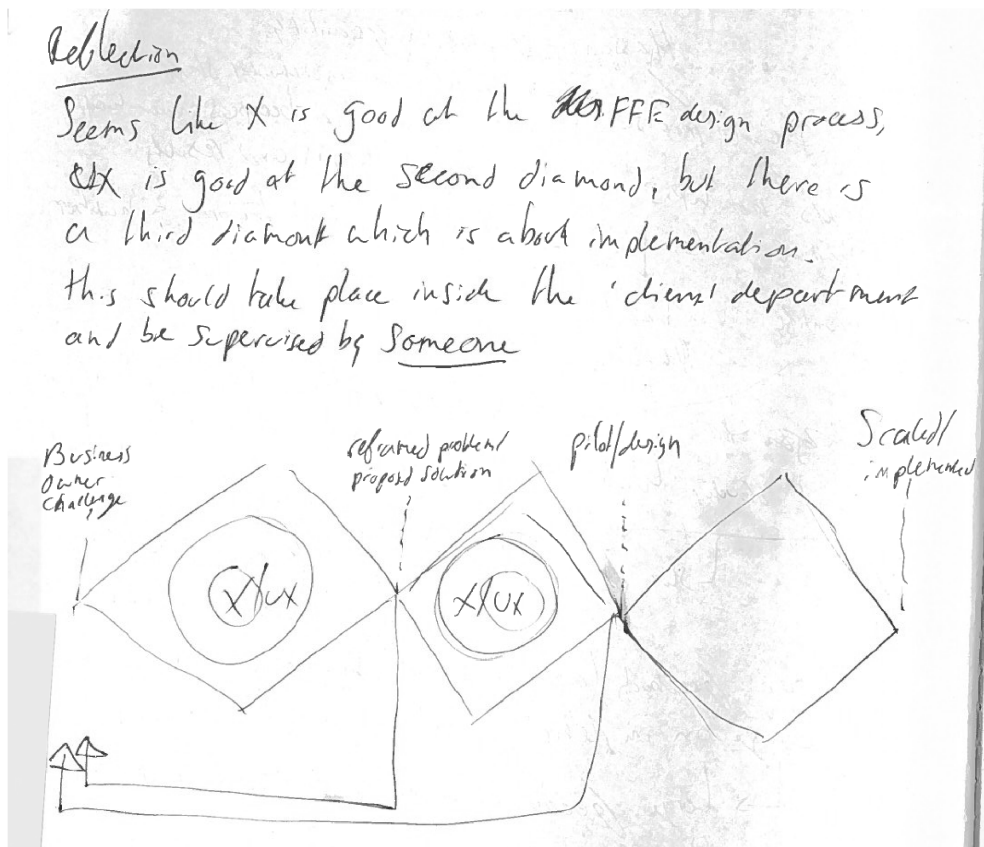 Reflection
Seems like X is good at the FFE design process,
UX is good at the second diamond, but there is
a third diamont which is about implementation.
this should take place inside the 'client' department
and be supervised by Someone
Business
Owner
Challenge
reframed problem/
proposd solution
pilot/design
Scaled/
implemented
X/UX
X/UX